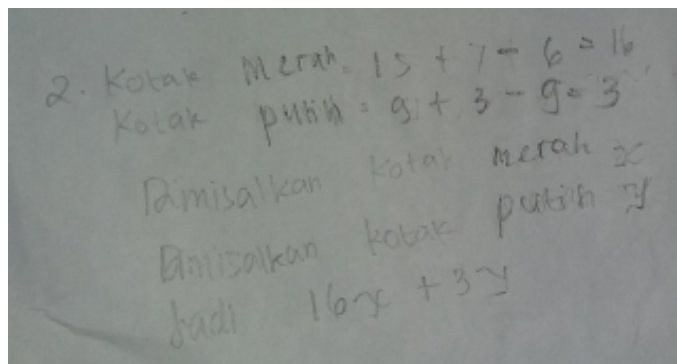 2. Kotak Merah = 15 + 7 - 6 = 16
Kotak putih = 9 + 3 - 9 = 3
Dimisalkan kotak merah x
Dimisalkan kotak putih y
Jadi 16x + 3y